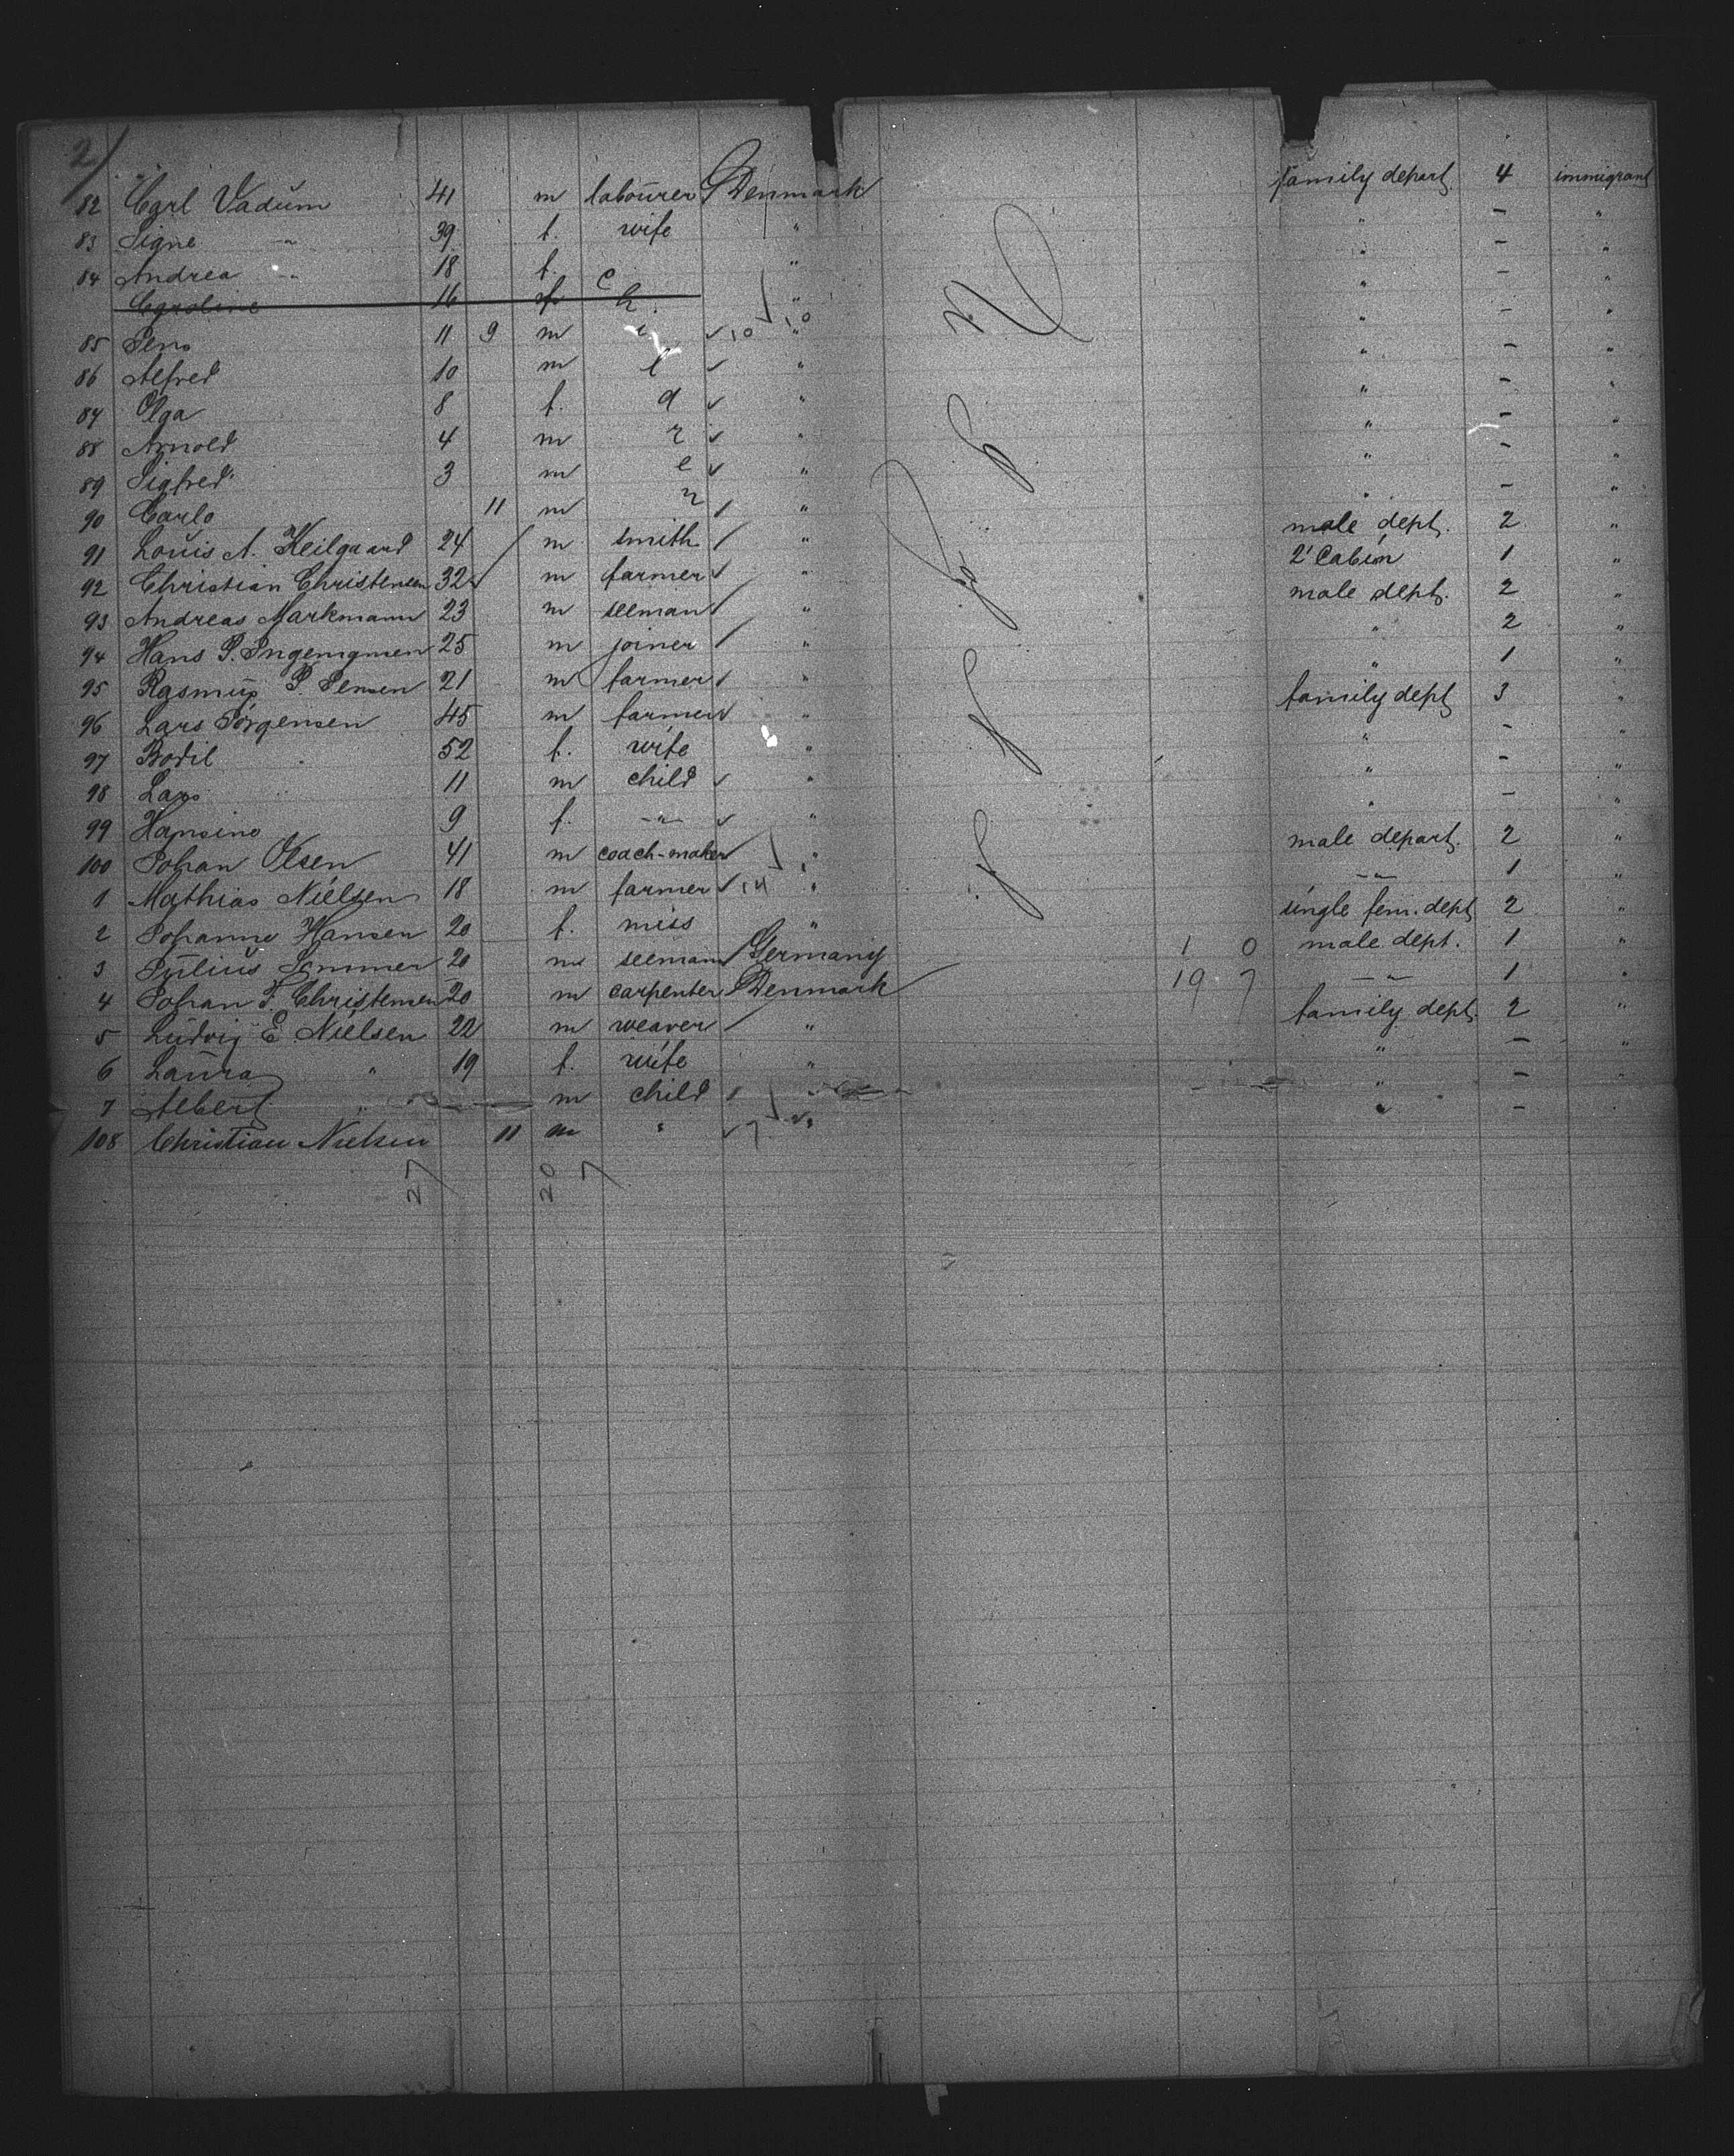 2/
82 Carl Vadum 41 m labourer Denmark family depart. 4 immigrant
83 Signe " 39 f. wife " " - "
84 Andrea " 18 f. " " - "
Caroline 16 f c h. " " - "
85 Jens 11 9 m i ✓ 10 10 " " - "
86 Alfred 10 m l ✓ " " - "
87 Olga 8 f. d ✓ " " - "
88 Arnold 4 m r ✓ " " - "
89 Sigfred 3 m e ✓ " " - "
90 Carlo 11 m n / " " - "
91 Louis A. Keilgaard 24 / m smith / " male dept. 2 "
92 Christian Christensen 32 / m farmer ✓ " 2' Cabin 1 "
93 Andreas Markmann 23 m seeman / " male dept. 2 "
94 Hans P. 25 m joiner / " " 2 "
95 Rasmus P. Jensen 21 m farmer / " " 1 "
96 Lars Jørgensen 45 m farmer ✓ " family dept 3 "
97 Bodil 52 f. wife " " - "
98 Lars 11 m child ✓ " " - "
99 Hansine 9 f. -"- ✓ " " - "
100 Johan Olsen 41 m coach-maker / " male depart. 2 "
1 Mathias Nielsen 18 m farmer ✓ 14 " -"- 1 "
2 Johanne Hansen 20 f. miss " single fem. dept 2 "
3 Julius Sommer 20 m seeman / Germany 1 0 male dept. 1 "
4 Johan F. Christensen 20 m carpenter Denmark 19 7 -"- 1 "
5 Ludvig E. Nielsen 22 m weaver / " family dept. 2 "
6 Laura " 19 f. wife " " - "
7 Albert " m child / " " - "
108 Christian Nielsen 11 m " ✓ 7 " " -
27 20 7